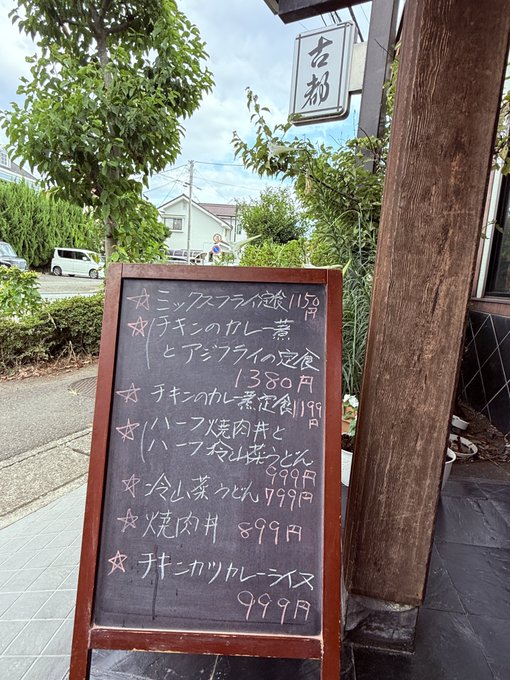 古都
☆ミックスフライ定食1150円
☆チキンのカレー煮
とアジフライの定食
1380円
☆チキンのカレー煮定食1199円
☆ハーフ焼肉丼と
ハーフ冷山菜うどん
999円
☆冷山菜うどん799円
☆焼肉丼 899円
☆チキンカツカレーライス
999円